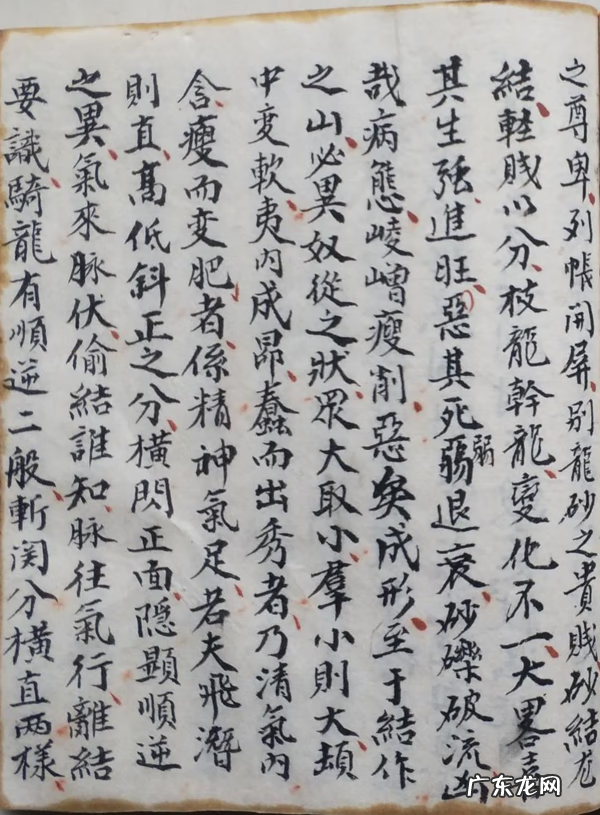 之尊卑列帳開屏别龍砂之貴賤砂結龙
結軽賎以分枝龍幹龍变化不一大畧喜
其生强進旺惡其死弱退衰砂礫破流凶
弱
哉病態崚嶒瘦削惡矣成形至于結作
之山必異奴從之狀眾大取小羣小則大頑
中变軟夷内成昂蠢而出秀者乃清氣内
含瘦而变肥者係精神氣足若夫飛潛
則直高低斜正之分橫閃正面隱顯順逆
之異氣來脉伏偷結誰知脉往氣行離結
要識騎龍有順逆二般斬関分橫直両樣
广东龙网